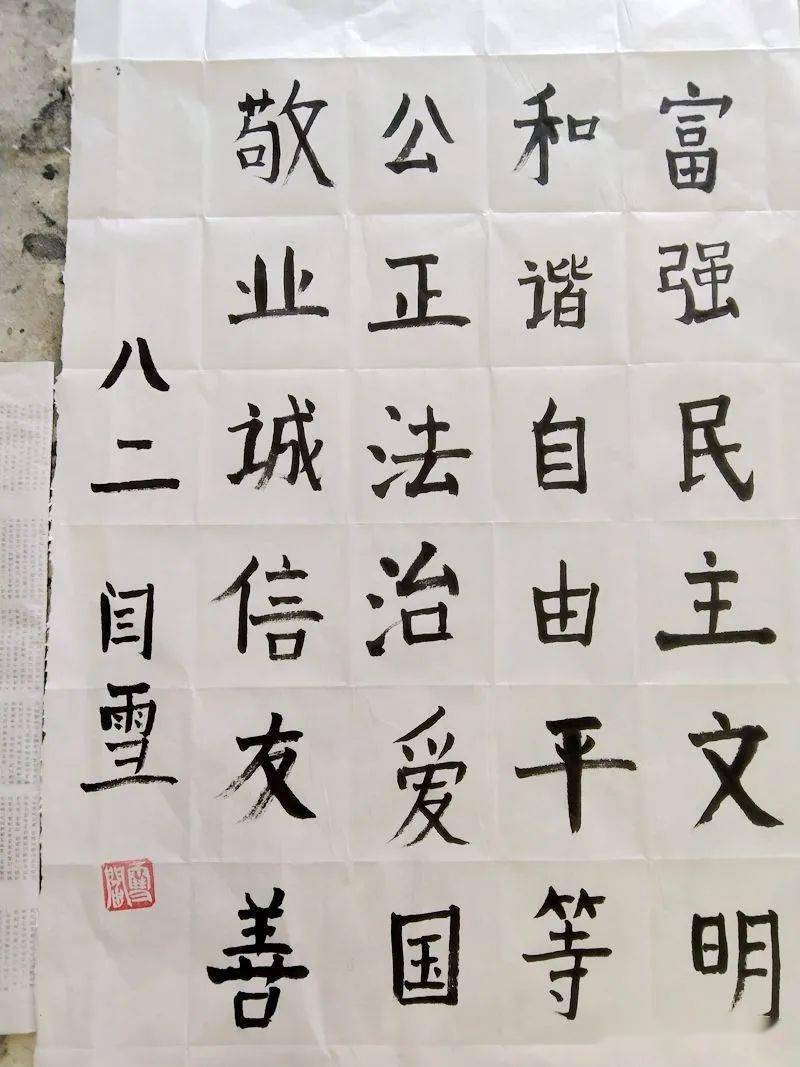 富强民主文明
和谐自由平等
公正法治爱国
敬业诚信友善
八二 闫雪